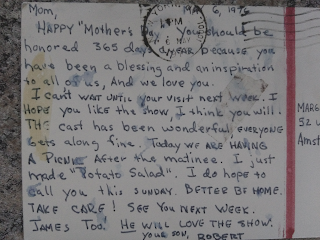 Mom, MAY 6, 197
1 PM
HAPPY "Mother's Day". You should be
honored 365 days a year because you
have been a blessing and an inspiration
to all of us, And we love you.
I can't WAIT UNTIL YOUR VISIT next week. I
HOPE you like the show, I think you will.
THE cast has been wonderful, EVERYONE
Gets along fine. Today WE ARE HAVING
A PICNIC After the matinee. I just
made "Potato Salad". I do hope to
call you this SUNDAY. BETTER BE HOME.
TAKE CARE! SEE YOU NEXT WEEK.
JAMES TOO. HE WILL LOVE THE SHOW.
YOUR SON, ROBERT
MARG
52
Amst